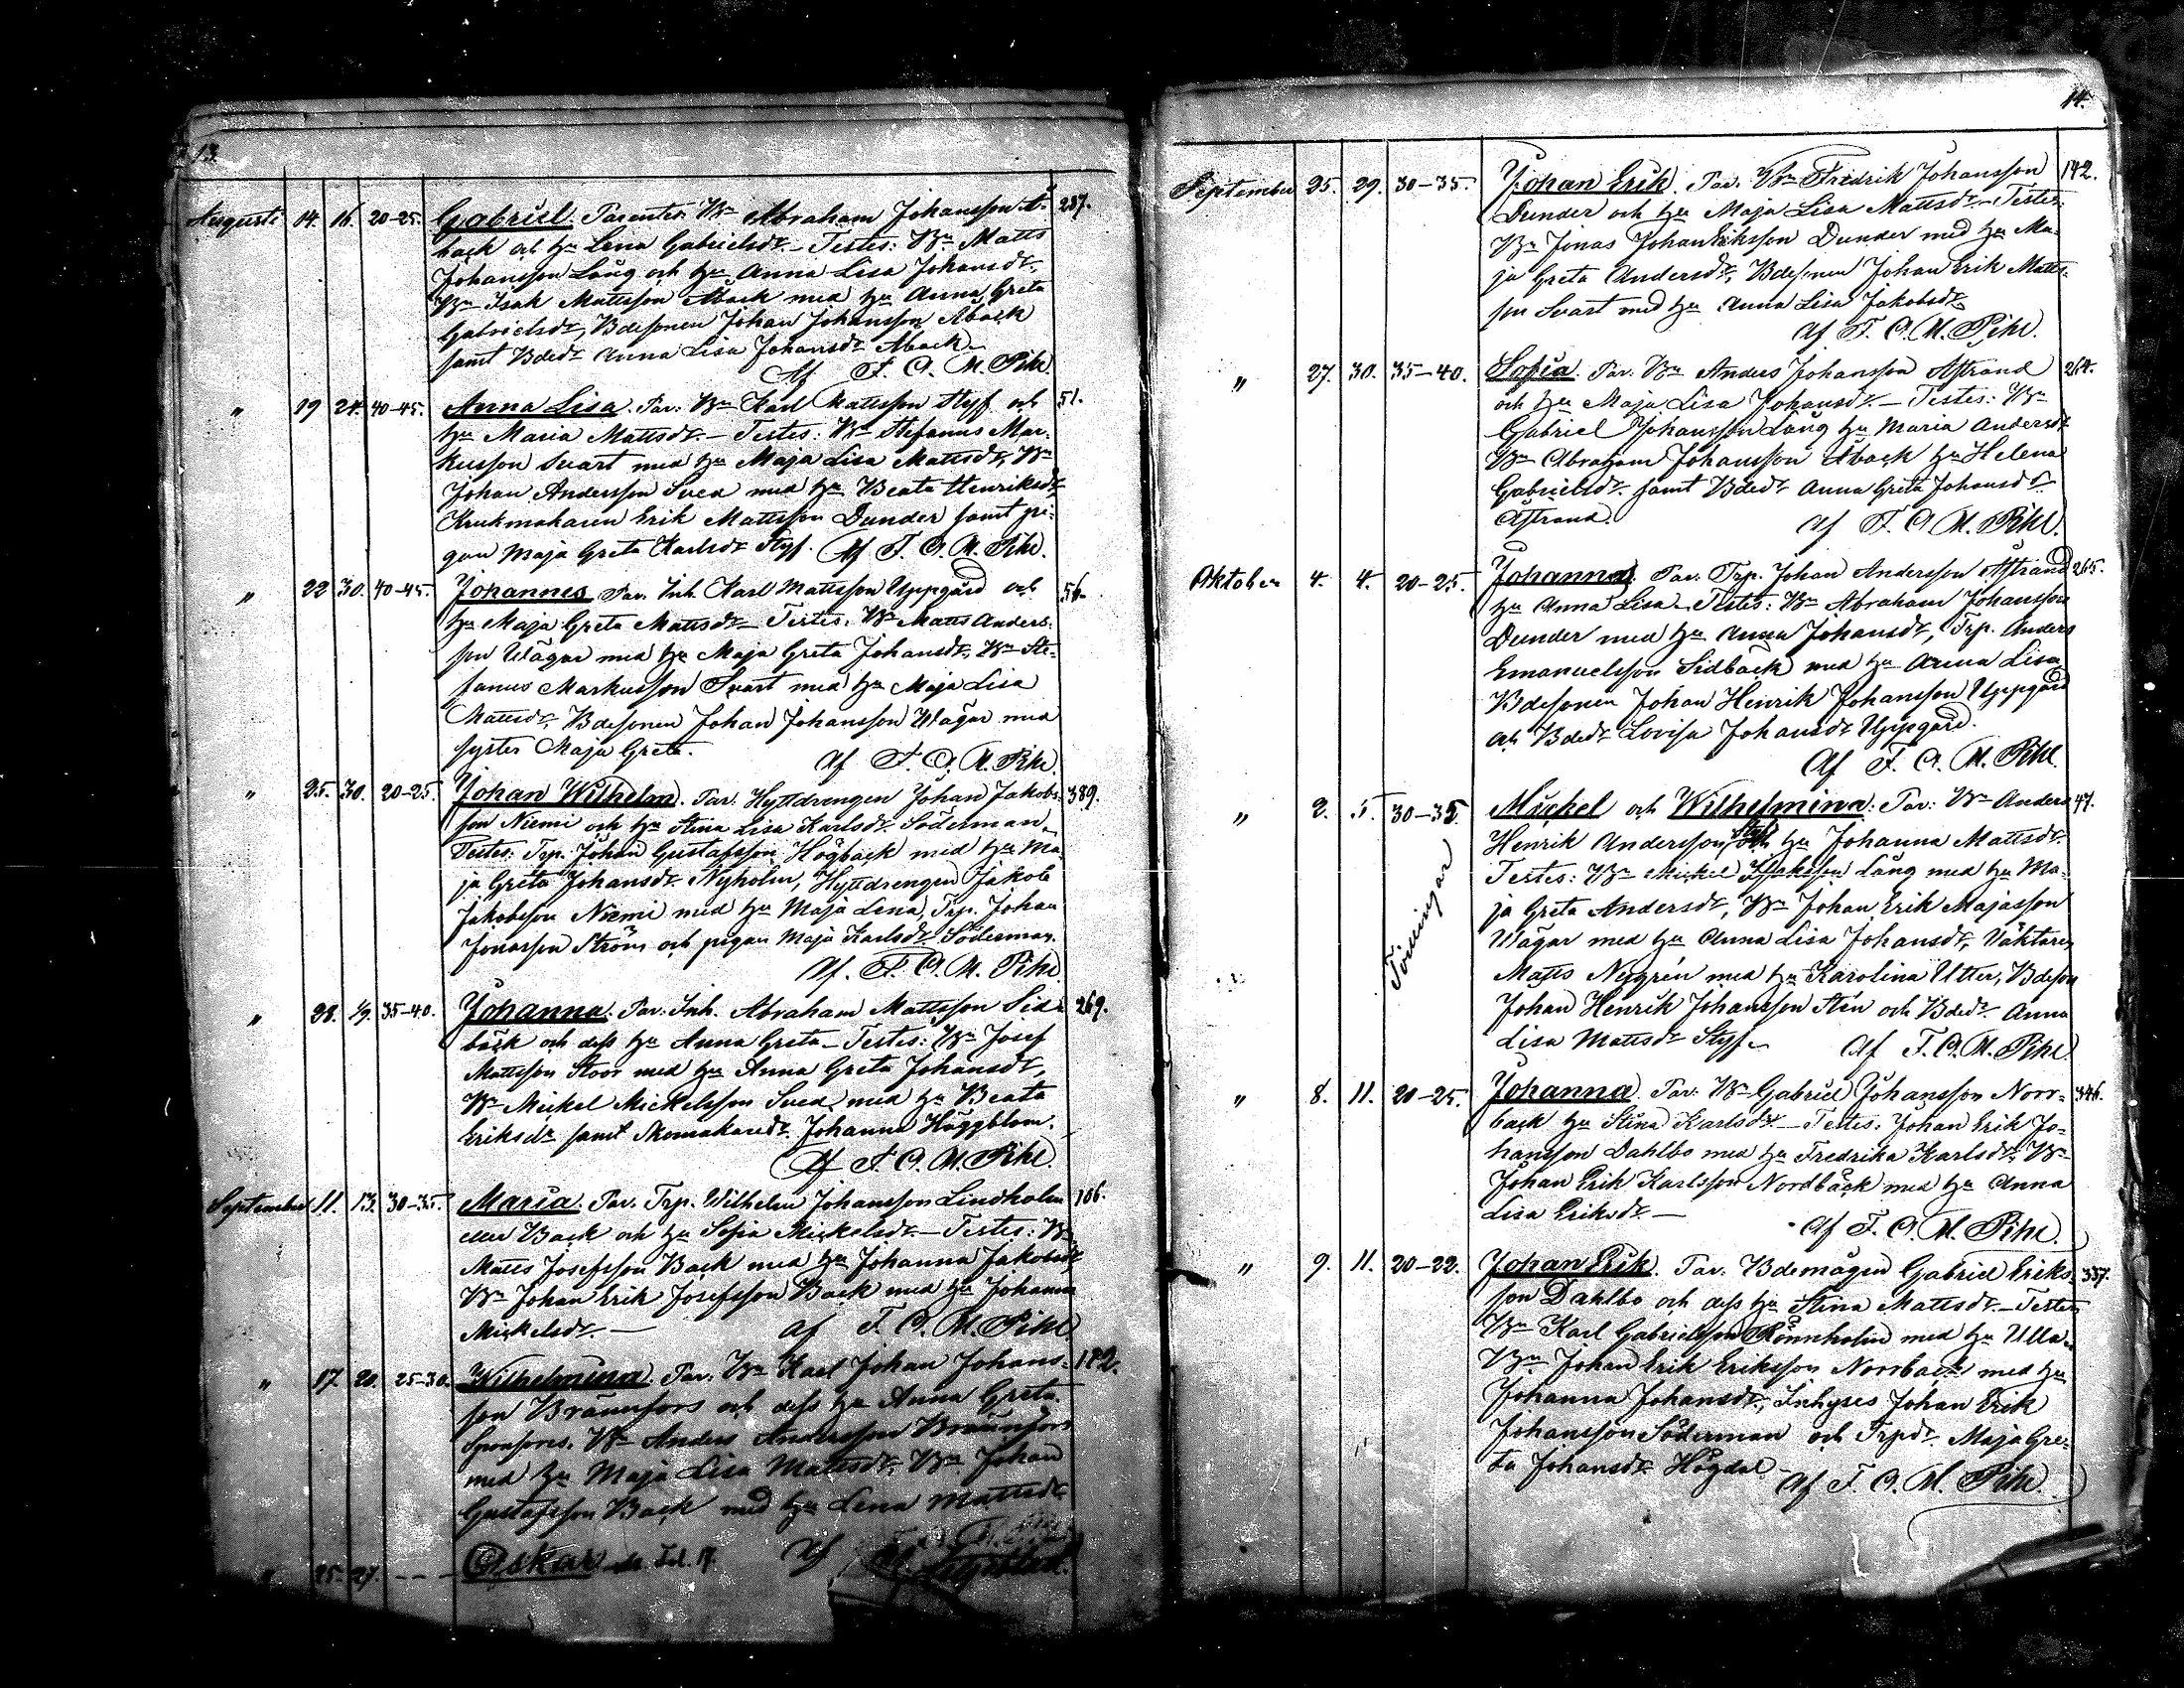 13.
Augusti 14. 16. 20-25. Gabriel. Parentes: Bn Abraham Johansson Å- 237.
back och hu Lena Gabrielsdr. - Testes: Bn Matts
Johansson Lång och hu Anna Lisa Johansdr,
Bn Isak Mattsson Åback med hu Anna Greta
Gabrielsdr, Bdesonen Johan Johansson Åback
samt Bdedr Anna Lisa Johansdr Åback.
Af F. O. M. Pihl.
" 19 24. 40-45. Anna Lisa. Par: Bn Karl Mattsson Styf och 51.
hu Maria Mattsdr. - Testes: Bn Stefanus Mar-
kusson Svart med hu Maja Lisa Mattsdr, Bn
Johan Andersson Sved med hu Beata Henriksdr,
Krukmakaren Erik Mattsson Dunder samt pi-
gan Maja Greta Karlsdr Styf. Af F. O. M. Pihl.
" 22 30. 40-45. Johannes. Par. Inh. Karl Mattsson Uppgård och 56.
hu Maja Greta Mattsdr - Testes: Bn Matts Anders-
son Wägar med hu Maja Greta Johansdr, Bn Ste-
fanus Markusson Svart med hu Maja Lisa
Mattsdr, Bdesonen Johan Johansson Wägar med
syster Maja Greta. Af F. O. M. Pihl.
" 25. 30. 20-25. Johan Wilhelm. Par. Hyttdrengen Johan Jakobs- 389.
son Niemi och hu Stina Lisa Karlsdr Söderman.
Testes: Trp. Johan Gustafsson Högback med hu Ma-
ja Greta Johansdr Nyholm, Hyttdrengen Jakob
Jakobsson Niemi med hu Maja Lena, Trp. Johan
Jonasson Ström och pigan Maja Karlsdr Söderman.
Af. F. O. M. Pihl.
" 28. 1/9. 35-40. Johanna. Par. Inh. Abraham Mattsson Sid- 269.
bäck och dess hu Anna Greta - Testes: Bn Josef
Mattsson Stoor med hu Anna Greta Johansdr,
Bn Mickel Mickelsson Sved med hu Beata
Eriksdr samt Skomakaredr. Johanna Häggblom.
Af F. O. M. Pihl.
September 11. 13. 30-35. Maria. Par. Trp. Wilhelm Johansson Lindholm 106.
eller Back och hu Sofia Mickelsdr - Testes: Bn
Matts Josefsson Back med hu Johanna Jakobsdr,
Bn Johan Erik Josefsson Back med hu Johanna
Mickelsdr. - af F. O. M. Pihl.
" 17. 20. 25-30. Wilhelmina. Par. Bn Karl Johan Johans- 182.
son Brännfors och dess hu Anna Greta.
Sponsores. Bn Anders Andersson Brännfors
med hu Maja Lisa Mattsdr, Bn Johan
Gustafsson Back med hu Lena Mattsdr
Af
" 25. 27. --- Oskar se Fol. 17.
14.
September 25. 29. 30-35. Johan Erik. Par. Bn Fredrik Johansson 142.
Dunder och hu Maja Lisa Mattsdr. - Testes:
Bn Jonas Johan Eriksson Dunder med hu Ma-
ja Greta Andersdr, Bdesonen Johan Erik Matts-
son Svart med hu Anna Lisa Jakobsdr
Af F. O. M. Pihl.
" 27. 30. 35-40. Sofia. Par: Bn Anders Johansson Åstrand 264.
och hu Maja Lisa Johansdr. - Testes: Bn
Gabriel Johansson Lång hu Maria Andersdr
Bn Abraham Johansson Åback hu Helena
Gabrielsdr samt Bdedr Anna Greta Johansdr
Åstrand. Af F. O. M. Pihl.
Oktober 4. 4. 20-25. Johanna. Par. Trp. Johan Andersson Åstrand 265.
hu Anna Lisa. Testes: Bn Abraham Johansson
Dunder med hu Anna Johansdr, Trp. Anders
Emanuelsson Sidback med hu Anna Lisa
Bdesonen Johan Henrik Johansson Uppgård
och Bdedr Lovisa Johansdr Uppgård.
Af F. O. M. Pihl.
" 2. 5. 30-35. Mickel och Wilhelmina: Par: Bn Anders 47.
Tvillingar
Henrik Andersson Styf och hu Johanna Mattsdr.
Testes: Bn Mickel Isaksson Lång med hu Ma-
ja Greta Andersdr, Bn Johan Erik Majasson
Wägar med hu Anna Lisa Johansdr, Väktaren
Matts Nygrén med hu Karolina Utter, Bdeson
Johan Henrik Johansson Stén och Bdedr Anna
Lisa Mattsdr Styf. Af F. O. M. Pihl.
" 8. 11. 20-25. Johanna. Par. Bn Gabriel Johansson Norr- 346.
back hu Stina Karlsdr. - Testes: Johan Erik Jo-
hansson Dahlbo med hu Fredrika Karlsdr, Bn
Johan Erik Karlsson Nordbäck med hu Anna
Lisa Eriksdr. - Af F. O. M. Pihl.
" 9. 11. 20-22. Johan Erik. Par. Bdemågen Gabriel Eriks- 357.
son Dahlbo och dess hu Stina Mattsdr. - Testes
Bn Karl Gabrielsson Rönnholm med hu Ulla.
Bn Johan Erik Eriksson Norrback med hu
Johanna Johansdr, Inhyses Johan Erik
Johansson Söderman och Trpdr. Maja Gre-
ta Johansdr Högdal - Af F. O. M. Pihl.